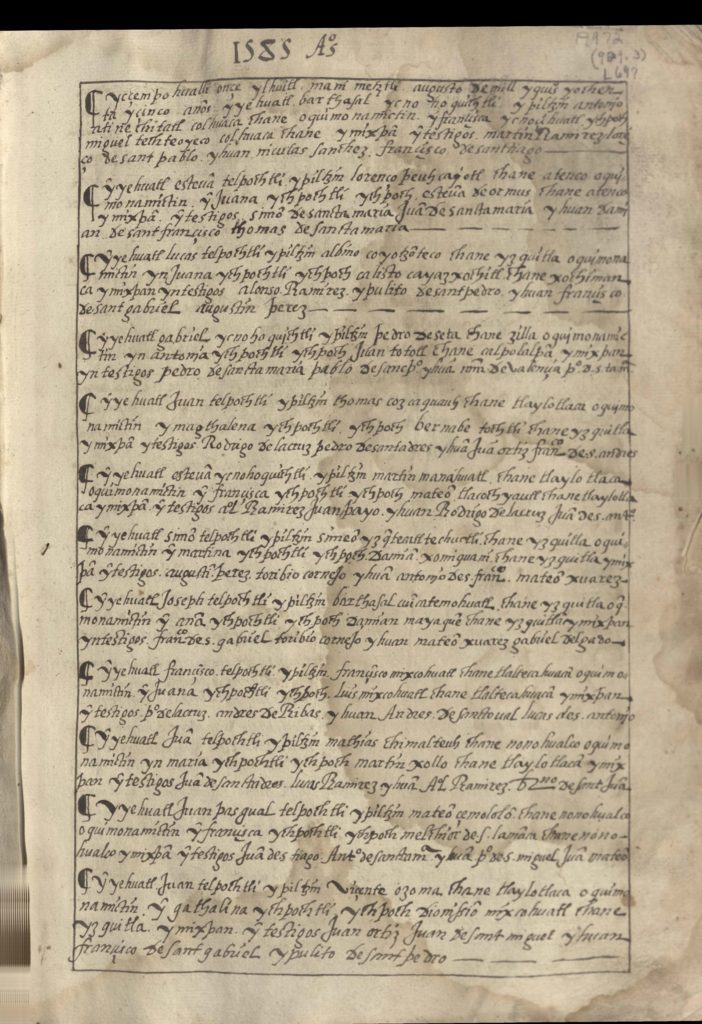 1585 Aºs
(989.3)
L697
¶ ycempohualli once ylhuitl mani metztli augusto de mill y quis yochen
ta y cinco años yyehuatl barthasal ycnooquichtli ypiltzin antonjo
colhuaca chane oquimonamictin yfrancisca ycnocihuatl ychpoch
miguel techteoyeco colhuaca chane ymixpã ytestigos martin Ramirez
co de sant pablo yhuan niculas sanchez francisco de santhiago
¶ yyehuatl esteuã telpochtli ypiltzin lorenco peuhcayotl chane atenco oqui
monamictin ỹ Juana ychpochtli ychpoch esteuã de ormus chane atenco
ymixpã ỹ testigos simõ de sancta maria Juã de sancta maria yhuan dami
an de sant françisco thomas de sancta maria
¶ yyehuatl lucas telpochtli ypiltzin albino coyotzõteco chane yzquitla oquimona
mictin yn Juana ychpochtli ychpoch calisto cayazxochitl chane xochiman
ca ymixpan yntestigos alonso Ramirez ypulito de sant pedro yhuan francisco
de sant gabriel augustin perez
¶ yyehuatl gabriel ycnohoquichtli ypiltzin pedro deseta chane zilla oquimonamic
tin yn antonja ychpochtli ychpoch Juan tototl chane calpolalpã ymixpan
yntestigos pedro de sancta maria pablo de sanc pº yhuã de Valençia pº d s
¶ yyehuatl Juan telpochtli ypiltzin thomas cozcaquauh chane tlaylotlaca oquimo
namictin ymagthalena ychpochtli ychpoch bernabe tochtli chane yzquitla
ymixpã ytestigos Rodrigo de la cruz pedro de santadres yhuã Juã ortiz franº de s. andres
¶ yyehuatl esteuã ycnohoquichtli ypiltzin martin manahuatl chane tlaylotlaca
oquimonamictin ỹ françisca ychpochtli ychpoch mateo tlacochyautl chane tlaylotla
ca ymixpã ỹ testigos aºl Ramirez Juan payo yhuan Rodrigo de la cruz Juã de s. antº
¶ yyehuatl simõ telpochtli ypiltzin simeõ chane yzquitla oqui
monamictin ỹ martina ychpochtli ychpoch Damiã xomiquani chane yzquitla ymix
pã ỹ testigos augustĩ perez toribio cornejo yhuã antonjo de s. franº mateo xuarez
¶ yyehuatl Joseph telpochtli ypiltzin barthasal cuicatemohuatl chane yzquitla oq̃
monamictin ỹ anã ychpochtli ychpoch Damian mayaquẽ chane yzquitla ymixpan
yntestigos franº de s. gabriel toribio cornejo yhuan mateo xuarez gabriel delgado
¶ yyehuatl françisco telpochtli ypiltzin françisco mixcohuatl chane tlaltecahuacã oquimo
namictin ỹ Juana ychpochtli ychpoch luis mixcohuatl chane tlaltecahuacã ymixpan
ỹ testigos pº de la cruz andres de Ribas yhuan Andres de sanctoual lucas de s. antonjo
¶ yyehuatl Juã telpochtli ypiltzin mathias chimalteuh chane nonohualco oquimo
namictin yn maria ychpochtli ychpoch martin xollo chane tlaylotlacã ymix
pan ỹ testigos Juã de sant adres lucas Ramirez yhuã Aºl Ramirez de sant Juã
¶ yyehuatl Juan pasqual telpochtli ypiltzin mateo cemololõ chane nonohualco
oquimonamictin ỹ françisca ychpochtli ychpoch melchior de s. chane nono
hualco ymixpã ỹ testigos Juã de s tiago Antº de sancta mª yhuã pº de s. miguel Juã mateo
¶ yyehuatl Juan telpochtli ypiltzin Viçente ozoma chane tlaylotlaca oquimo
namictin ỹ gathalina ychpochtli ychpoch Dionissio mixcohuatl chane
yzquitla ymixpan ỹ testigos Juan ortiz Juan de sant miguel yhuan
françisco de sant gabriel ypulito de sant pedro